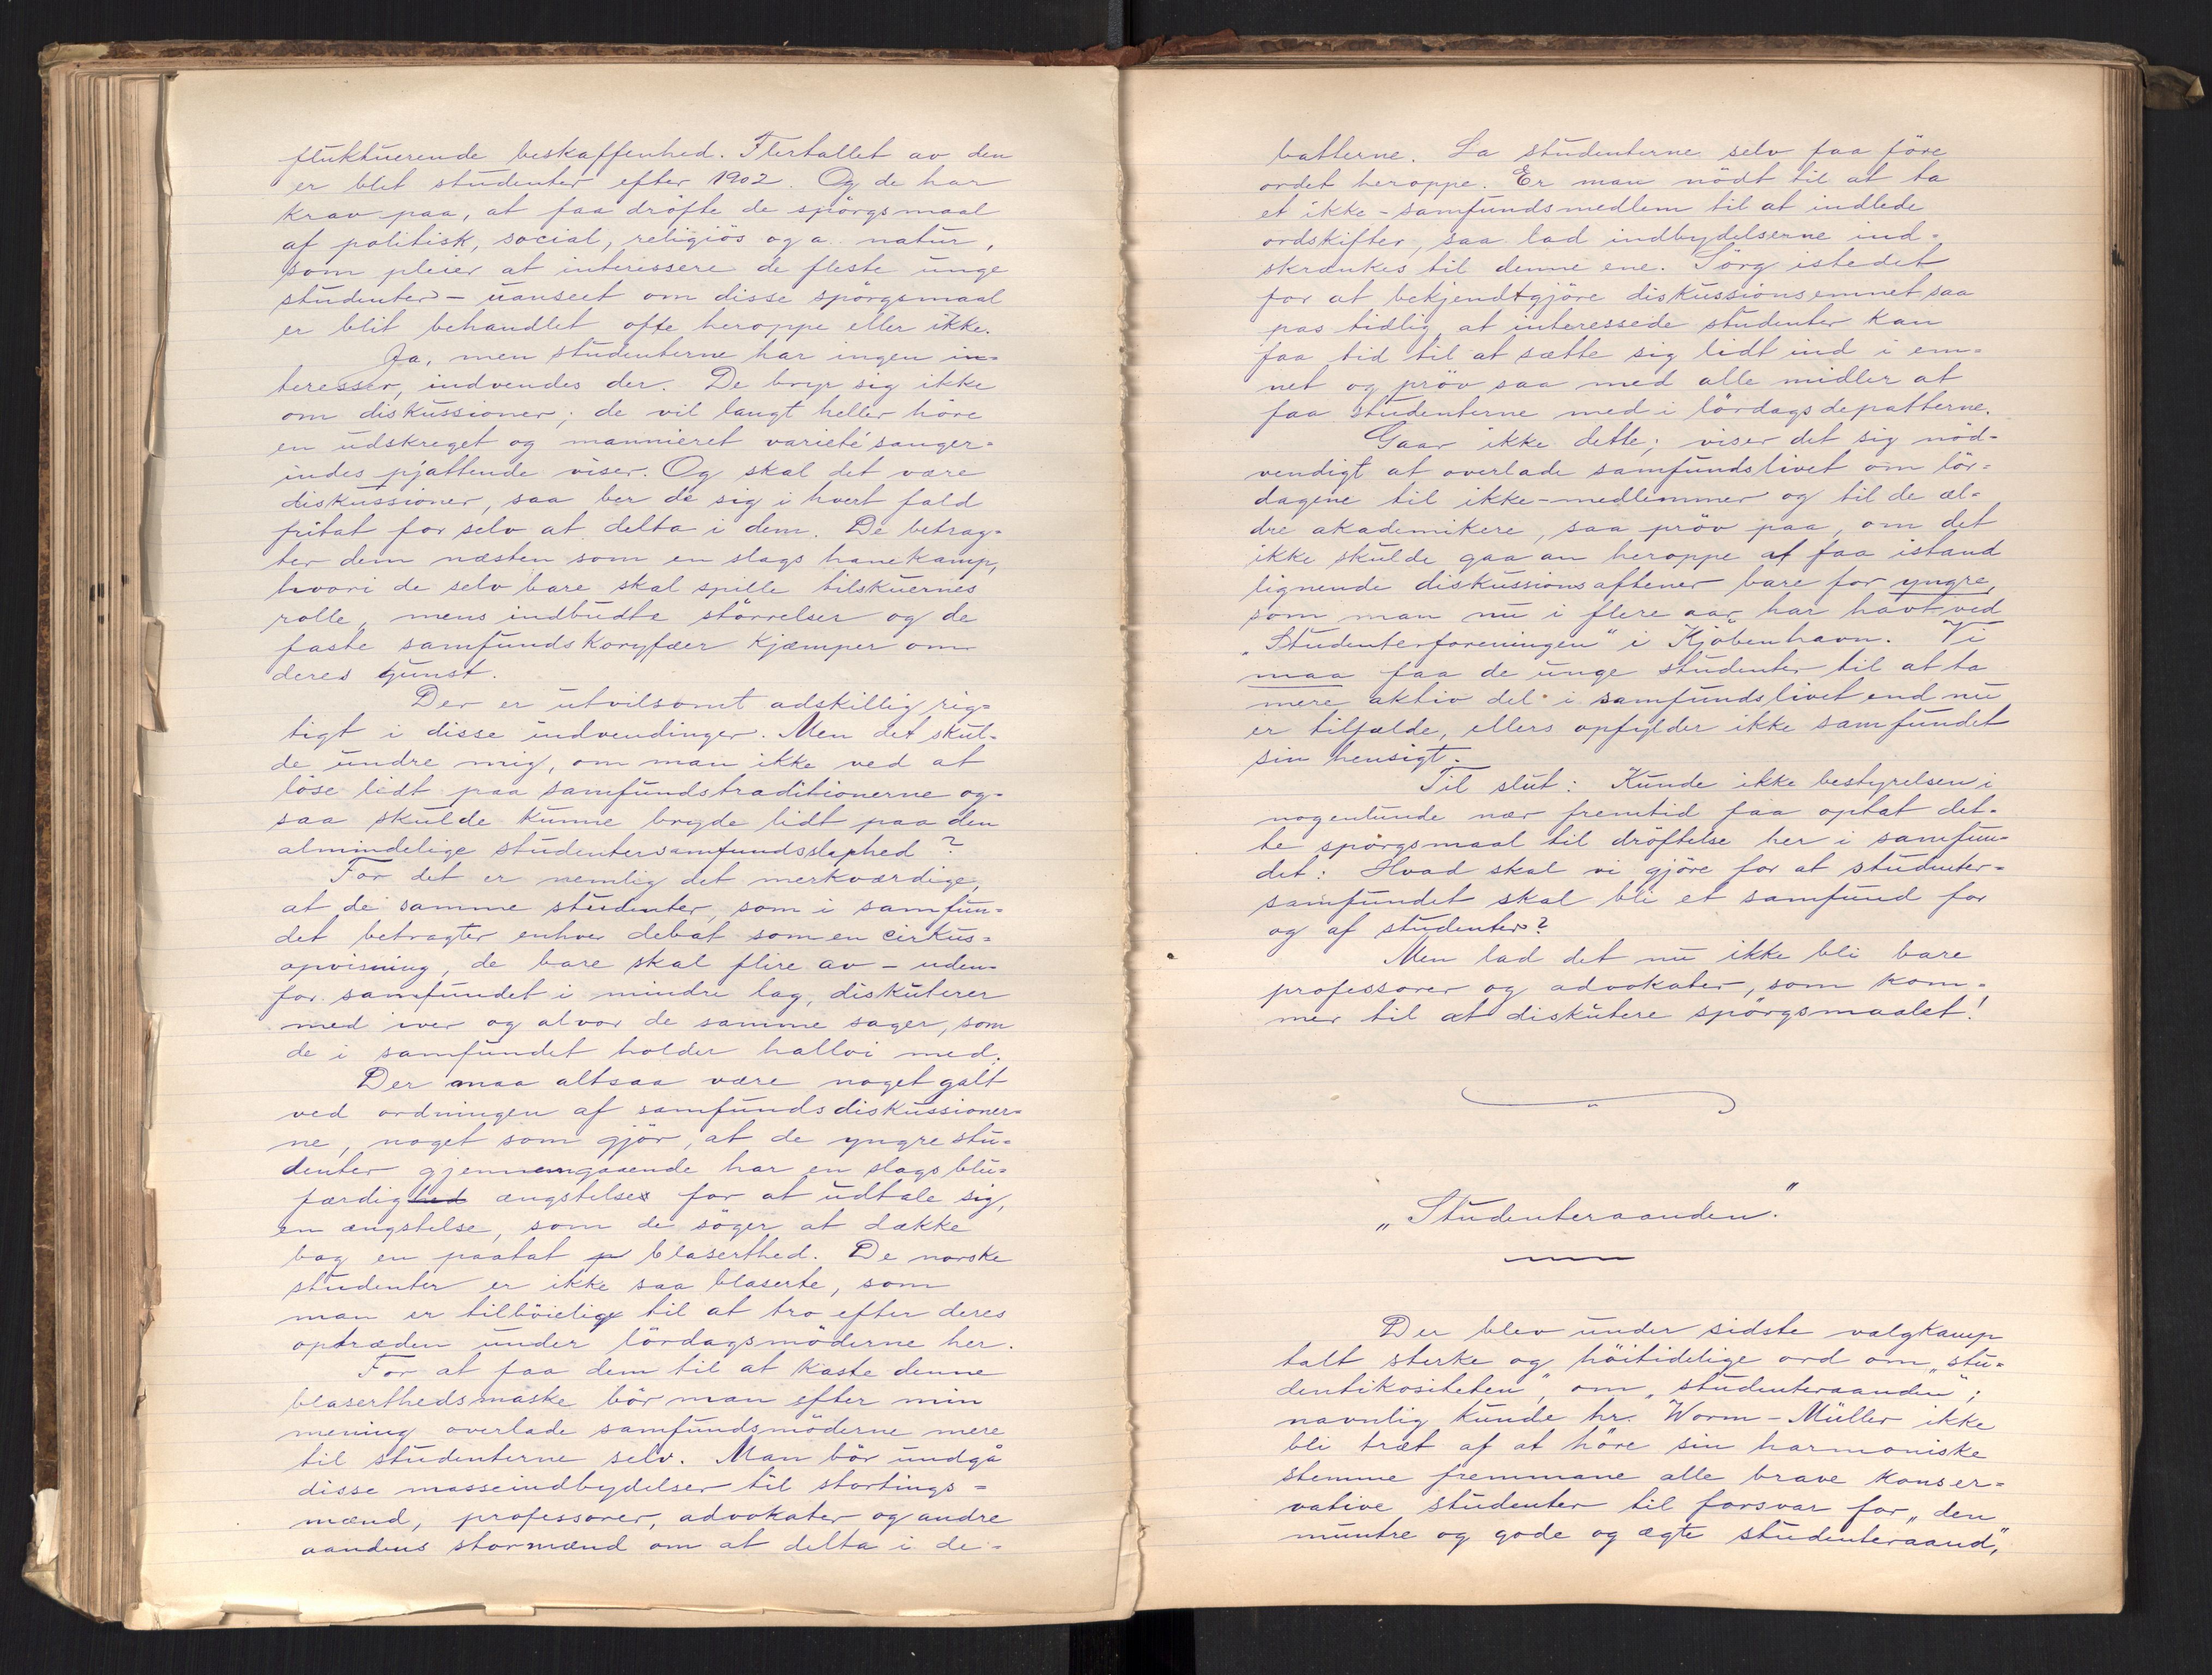 fluktuerende beskaffenhed. Flertallet av den
er blit studenter efter 1902. Og de har
krav paa, at faa dröfte de spörgsmaal
af politisk, social, religiös og a. natur,
som pleier at interessere de fleste unge
studenter – uanseet om disse spörgsmaal
er blit behandlet ofte heroppe eller ikke.
Ja, men studenterne har ingen in-
teresser, indvendes der. De bryr sig ikke
om diskussioner; de vil langt heller höre
en udskreget og manieret varieté sanger-
indes pjattende viser. Og skal det være
diskussioner, saa ber de sig i hvert fald
fritat for selv at delta i dem. De betrag-
ter dem næsten som en slags hanekamp,
hvori de selv bare skal spille tilskuernes
rolle, mens indbudte störrelser og de
faste samfundskoryfæer kjæmper om
deres gunst.
Der er utvilsomt adskillig rig-
tigt i disse indvendinger. Men det skul-
de undre mig, om man ikke ved at
löse lidt paa samfundstraditionerne og-
saa skulde kunne bryde lidt paa den
almindelige studentersamfundsslaphed?
For det er nemlig det merkværdige,
at de samme studenter, som i samfun-
det betragter enhver debat som en cirkus-
opvisning, de bare skal flire av – uden-
for samfundet i mindre lag, diskuterer
med iver og alvor de samme sager, som
de i samfundet holder halloi med.
Der maa altsaa være noget galt
ved ordningen af samfundsdiskussioner-
ne, noget som gjör, at de yngre stu-
denter gjennemgaaende har en slags blu-
færdighed ængstelses for at udtale sig,
en ængstelse, som de söger at dække
bag en paatat p blaserthed. De norske
studenter er ikke saa blaserte, som
man er tilböielige til at tro efter deres
optræden under lördagsmöderne her.
For at faa dem til at kaste denne
blaserthedsmaske bör man efter min
mening overlade samfundsmöderne mere
til studenterne selv. Man bör undgå
disse masseindbydelser til stortings-
mænd, professorer, advokater og andre
aandens stormænd om at delta i de-
batterne. La studenterne selv faa före
ordet heroppe. Er man nödt til at ta
et ikke-samfundsmedlem til at indlede
ordskifter, saa lad indbydelserne ind-
skrænkes til denne ene. Sörg istedet
for at bekjendtgjöre diskussionsemnet saa
pas tidlig, at interessede studenter kan
faa tid til at sætte sig lidt ind i em-
net og pröv saa med alle midler at
faa studenterne med i lördagsdepatterne.
Gaar ikke dette; viser det sig nöd-
vendigt at overlade samfundslivet om lör-
dagene til ikke-medlemmer og til de æl-
dre akademikere, saa pröv paa, om det
ikke skulde gaa an heroppe at faa istand
lignende diskussionsaftener bare for yngre,
som man nu i flere aar har havt ved
"Studenterforeningen" i Kjöbenhavn. Vi
maa faa de unge studenter til at ta
mere aktiv del i samfundslivet end nu
er tilfælde, ellers opfylder ikke samfundet
sin hensigt.
Til slut: Kunde ikke bestyrelsen i
nogenlunde nær fremtid faa optat det-
te spörgsmaal til dröftelse her i samfun-
det: Hvad skal vi gjöre for at studenter-
samfundet skal bli et samfund for
og af studenter?
Men lad det nu ikke bli bare
professorer og advokater, som kom-
mer til at diskutere spörgsmaalet!
„Studenteraanden."
Der blev under sidste valgkamp
talt sterke og höitidelige ord om „stu-
dentikositeten", om „studenteraanden";
navnlig kunde hr. Worm-Müller ikke
bli træt af at höre sin harmoniske
stemme fremmane alle brave konser-
vative studenter til forsvar for „den
muntre og gode og ægte studenteraand",